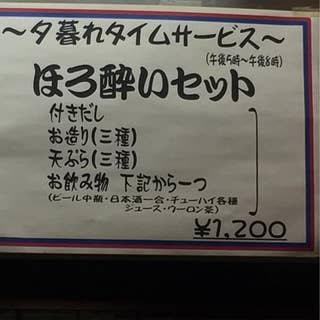 ～夕暮れタイムサービス～
(午後5時～午後8時)
ほろ酔いセット
付きだし
お造り(三種)
天ぷら(三種)
お飲み物 下記から一つ
(ビール中瓶・日本酒一合・チューハイ各種
ジュース・ウーロン茶)
¥1,200